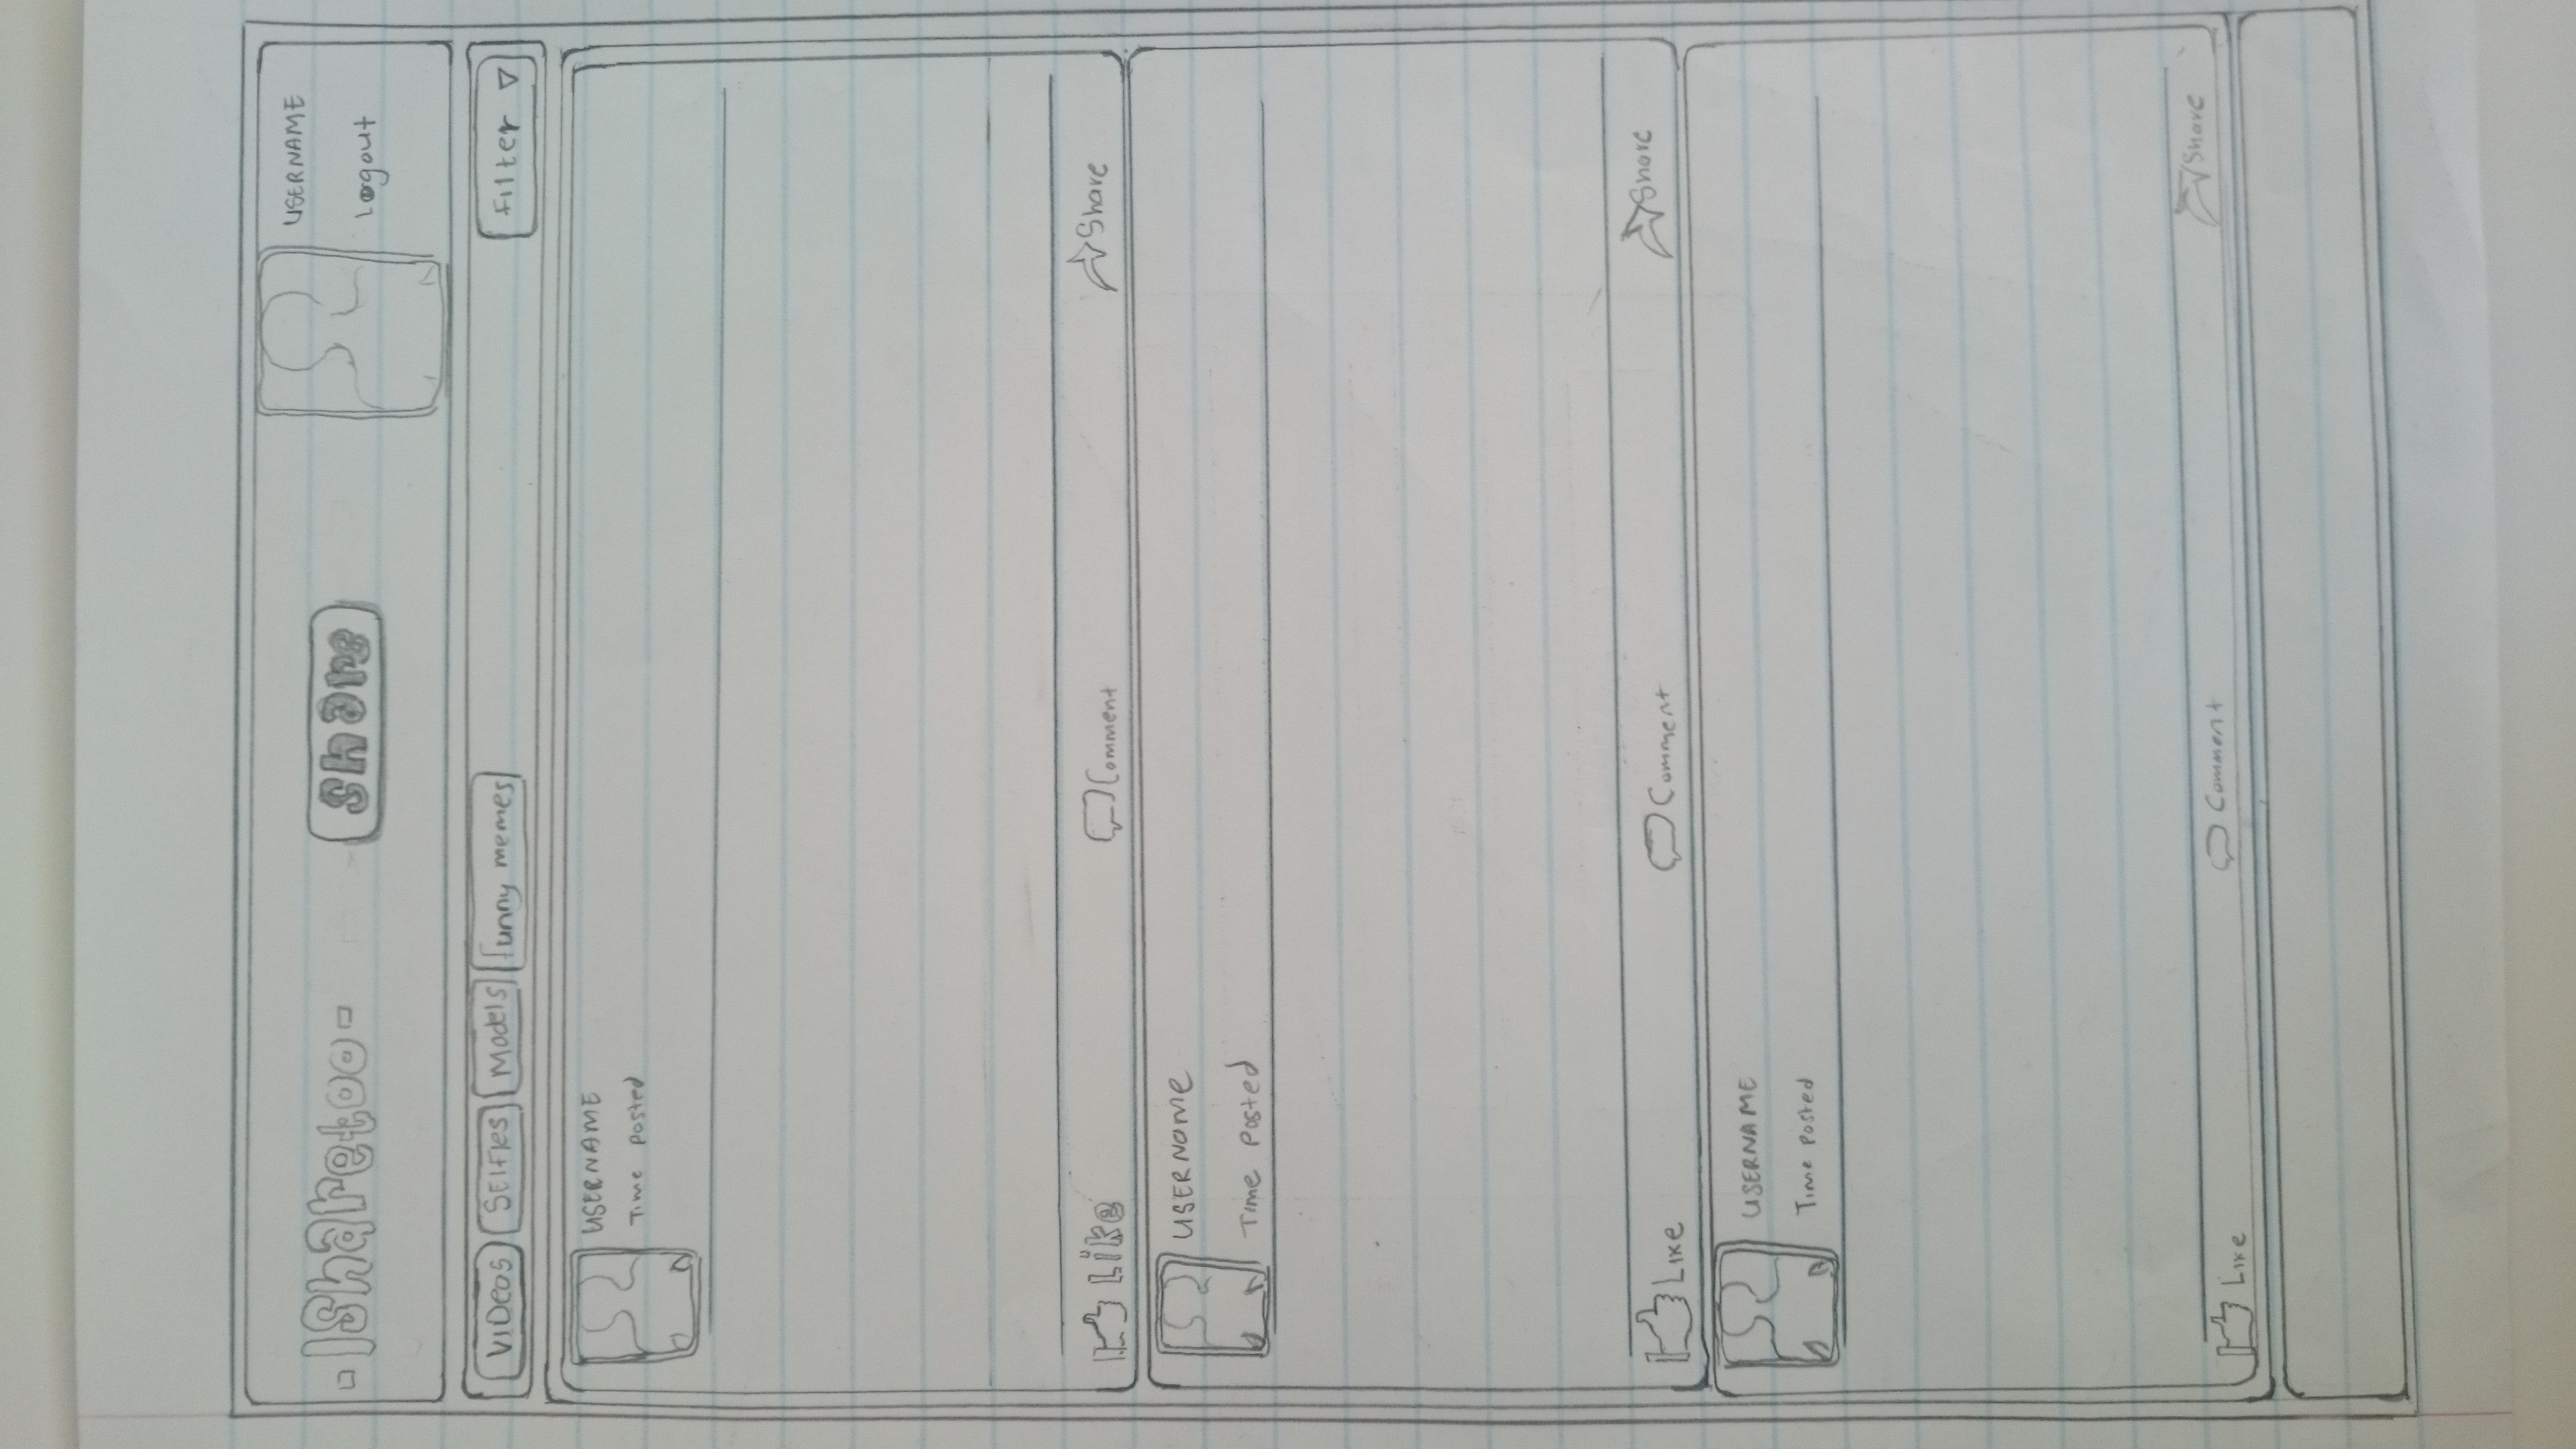 -ISharetoo-
Share
USERNAME
Logout
VIDeos
SElfies
Models
funny memes
Filter
USERNAME
Time Posted
Like
Comment
Share
USERNAme
Time Posted
Like
Comment
Share
USERNAME
Time Posted
Like
Comment
Share